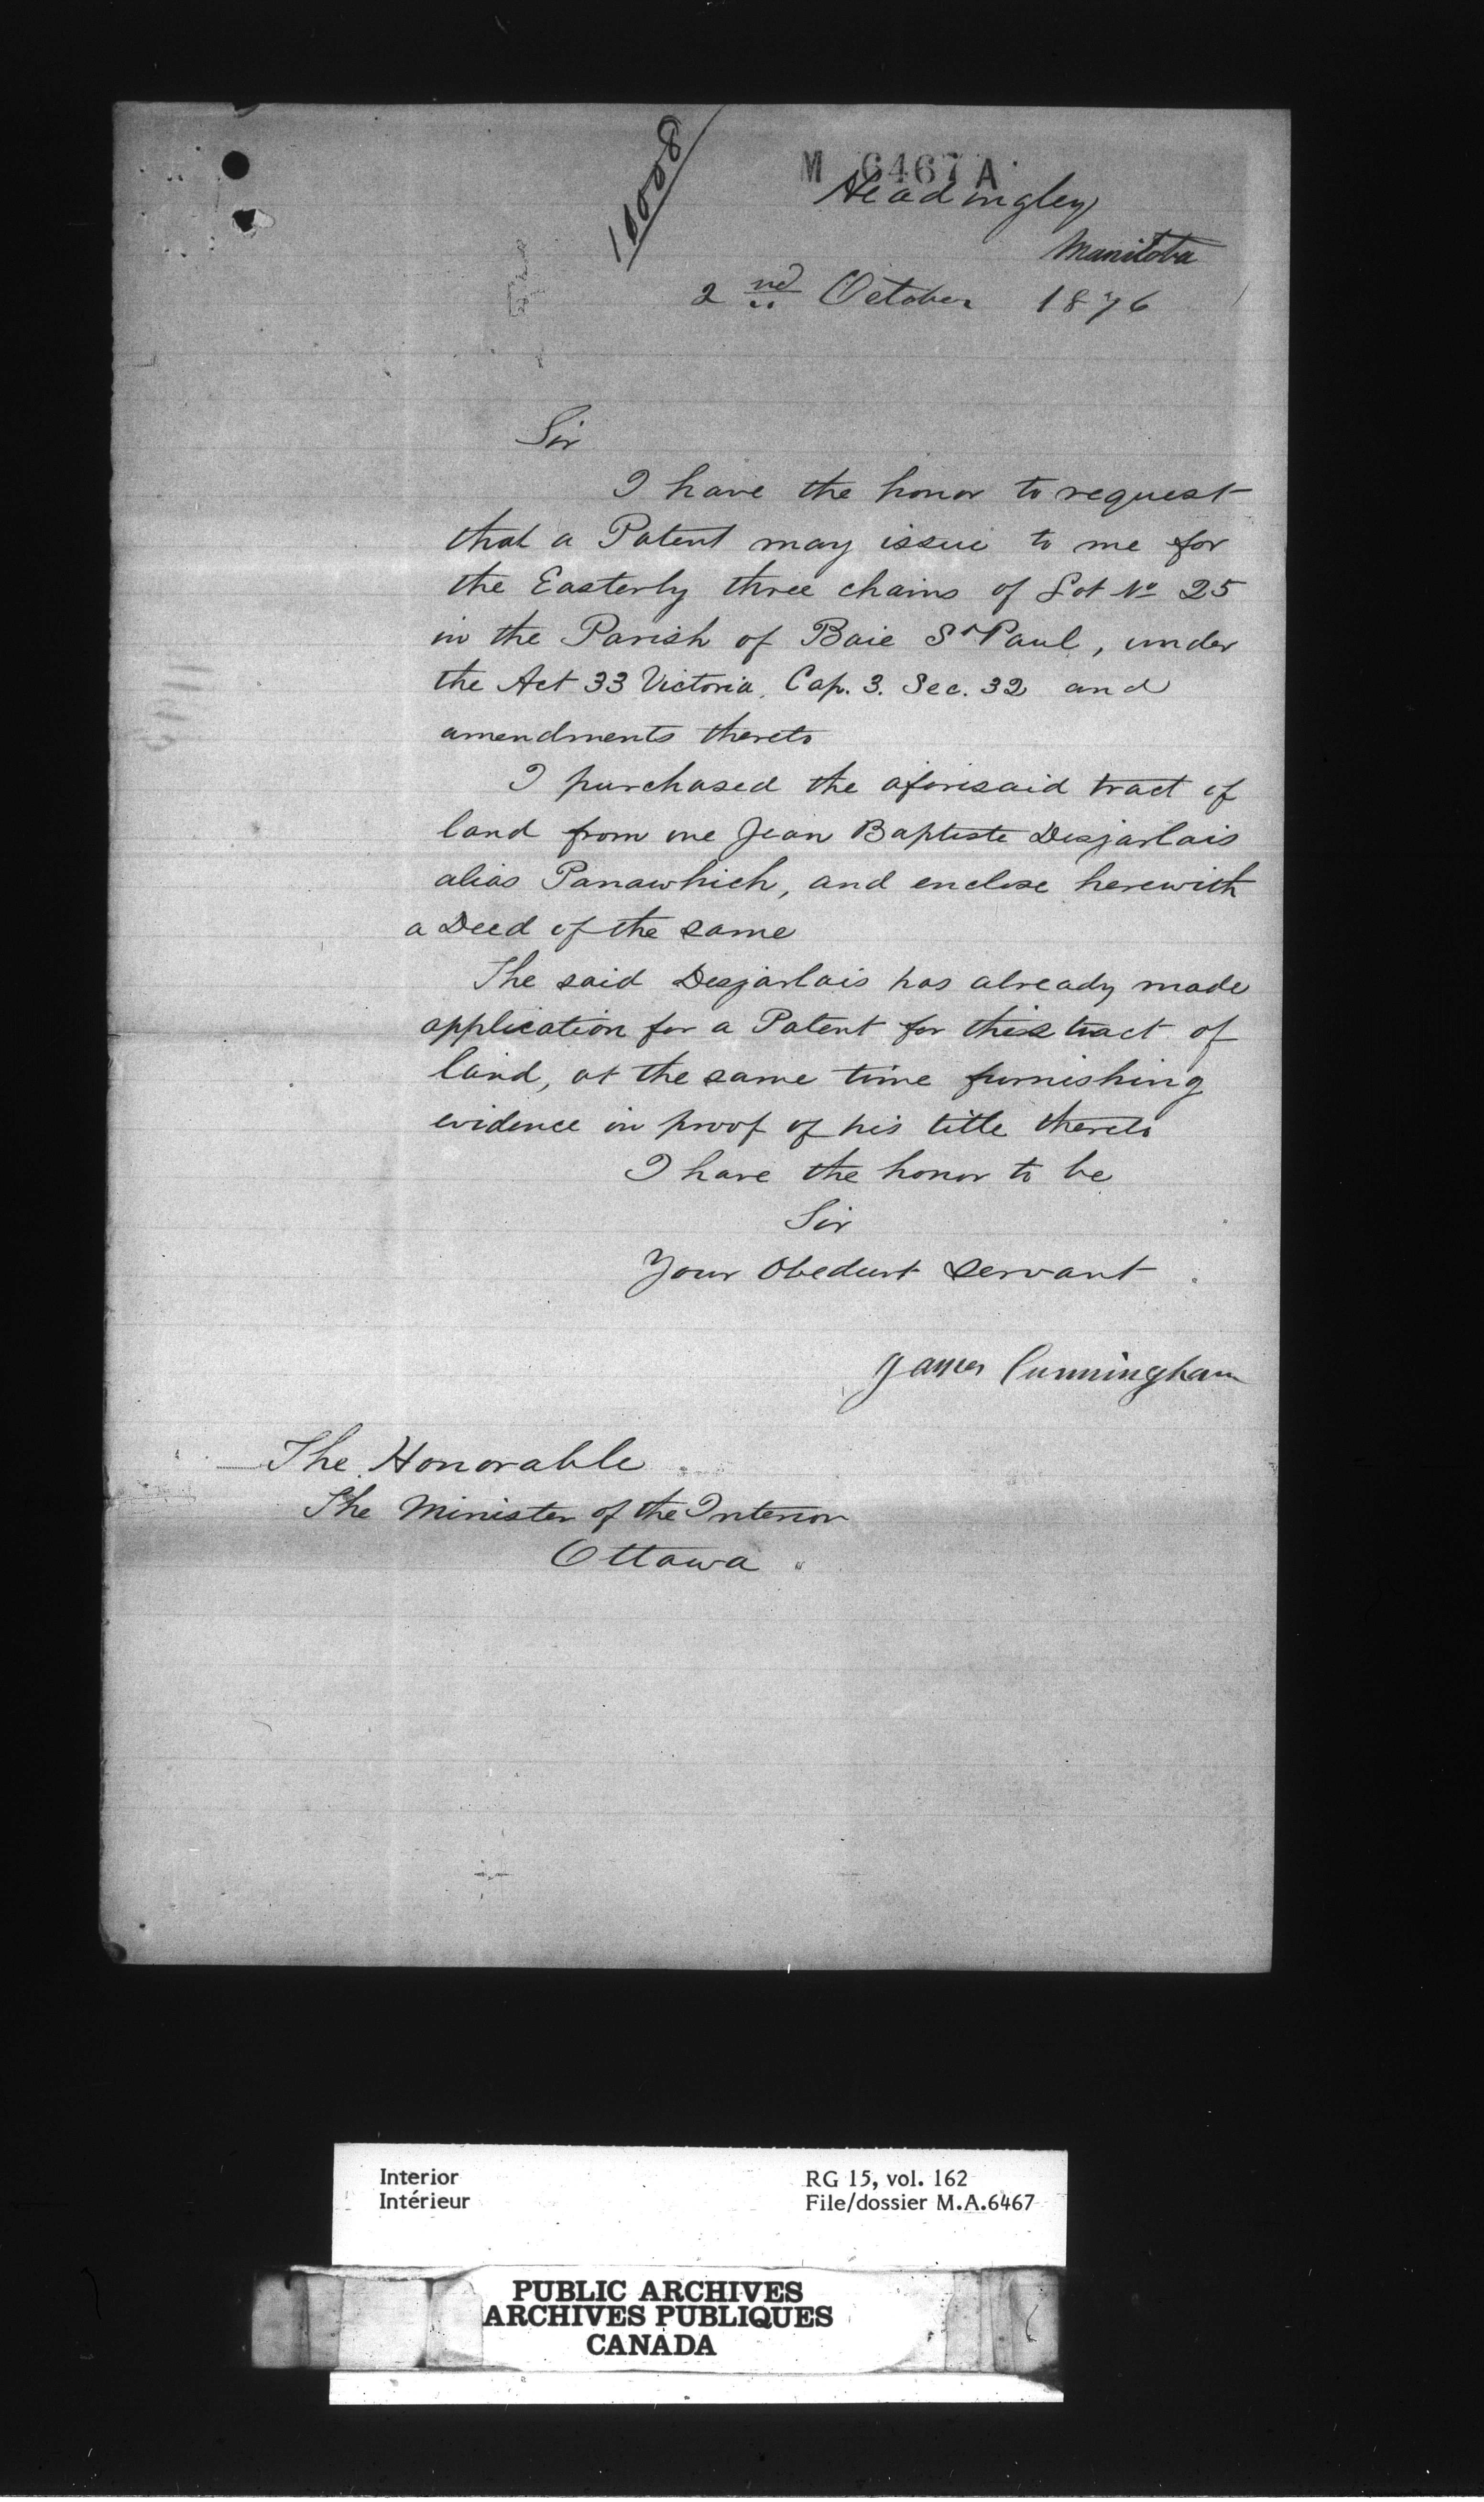 10008
M 6467 A
Headingley
Manitoba
2nd October 1876
Sir
I have the honor to request
that a Patent may issue to me for
the Easterly three chains of Lot No 25
in the Parish of Baie St Paul, under
the Act 33 Victoria. Cap. 3. Sec. 32 and
amendments thereto
I purchased the aforesaid tract of
land from one Jean Baptiste Desjarlais
alias Panawhich, and enclose herewith
a Deed of the same
The said Desjarlais has already made
application for a Patent for this tract of
land, at the same time furnishing
evidence in proof of his title thereto
I have the honor to be
Sir
Your Obedient Servant
James Cunningham
The Honorable
The Minister of the Interior
Ottawa
Interior RG 15, vol. 162
Intérieur File/dossier M.A.6467
PUBLIC ARCHIVES
ARCHIVES PUBLIQUES
CANADA